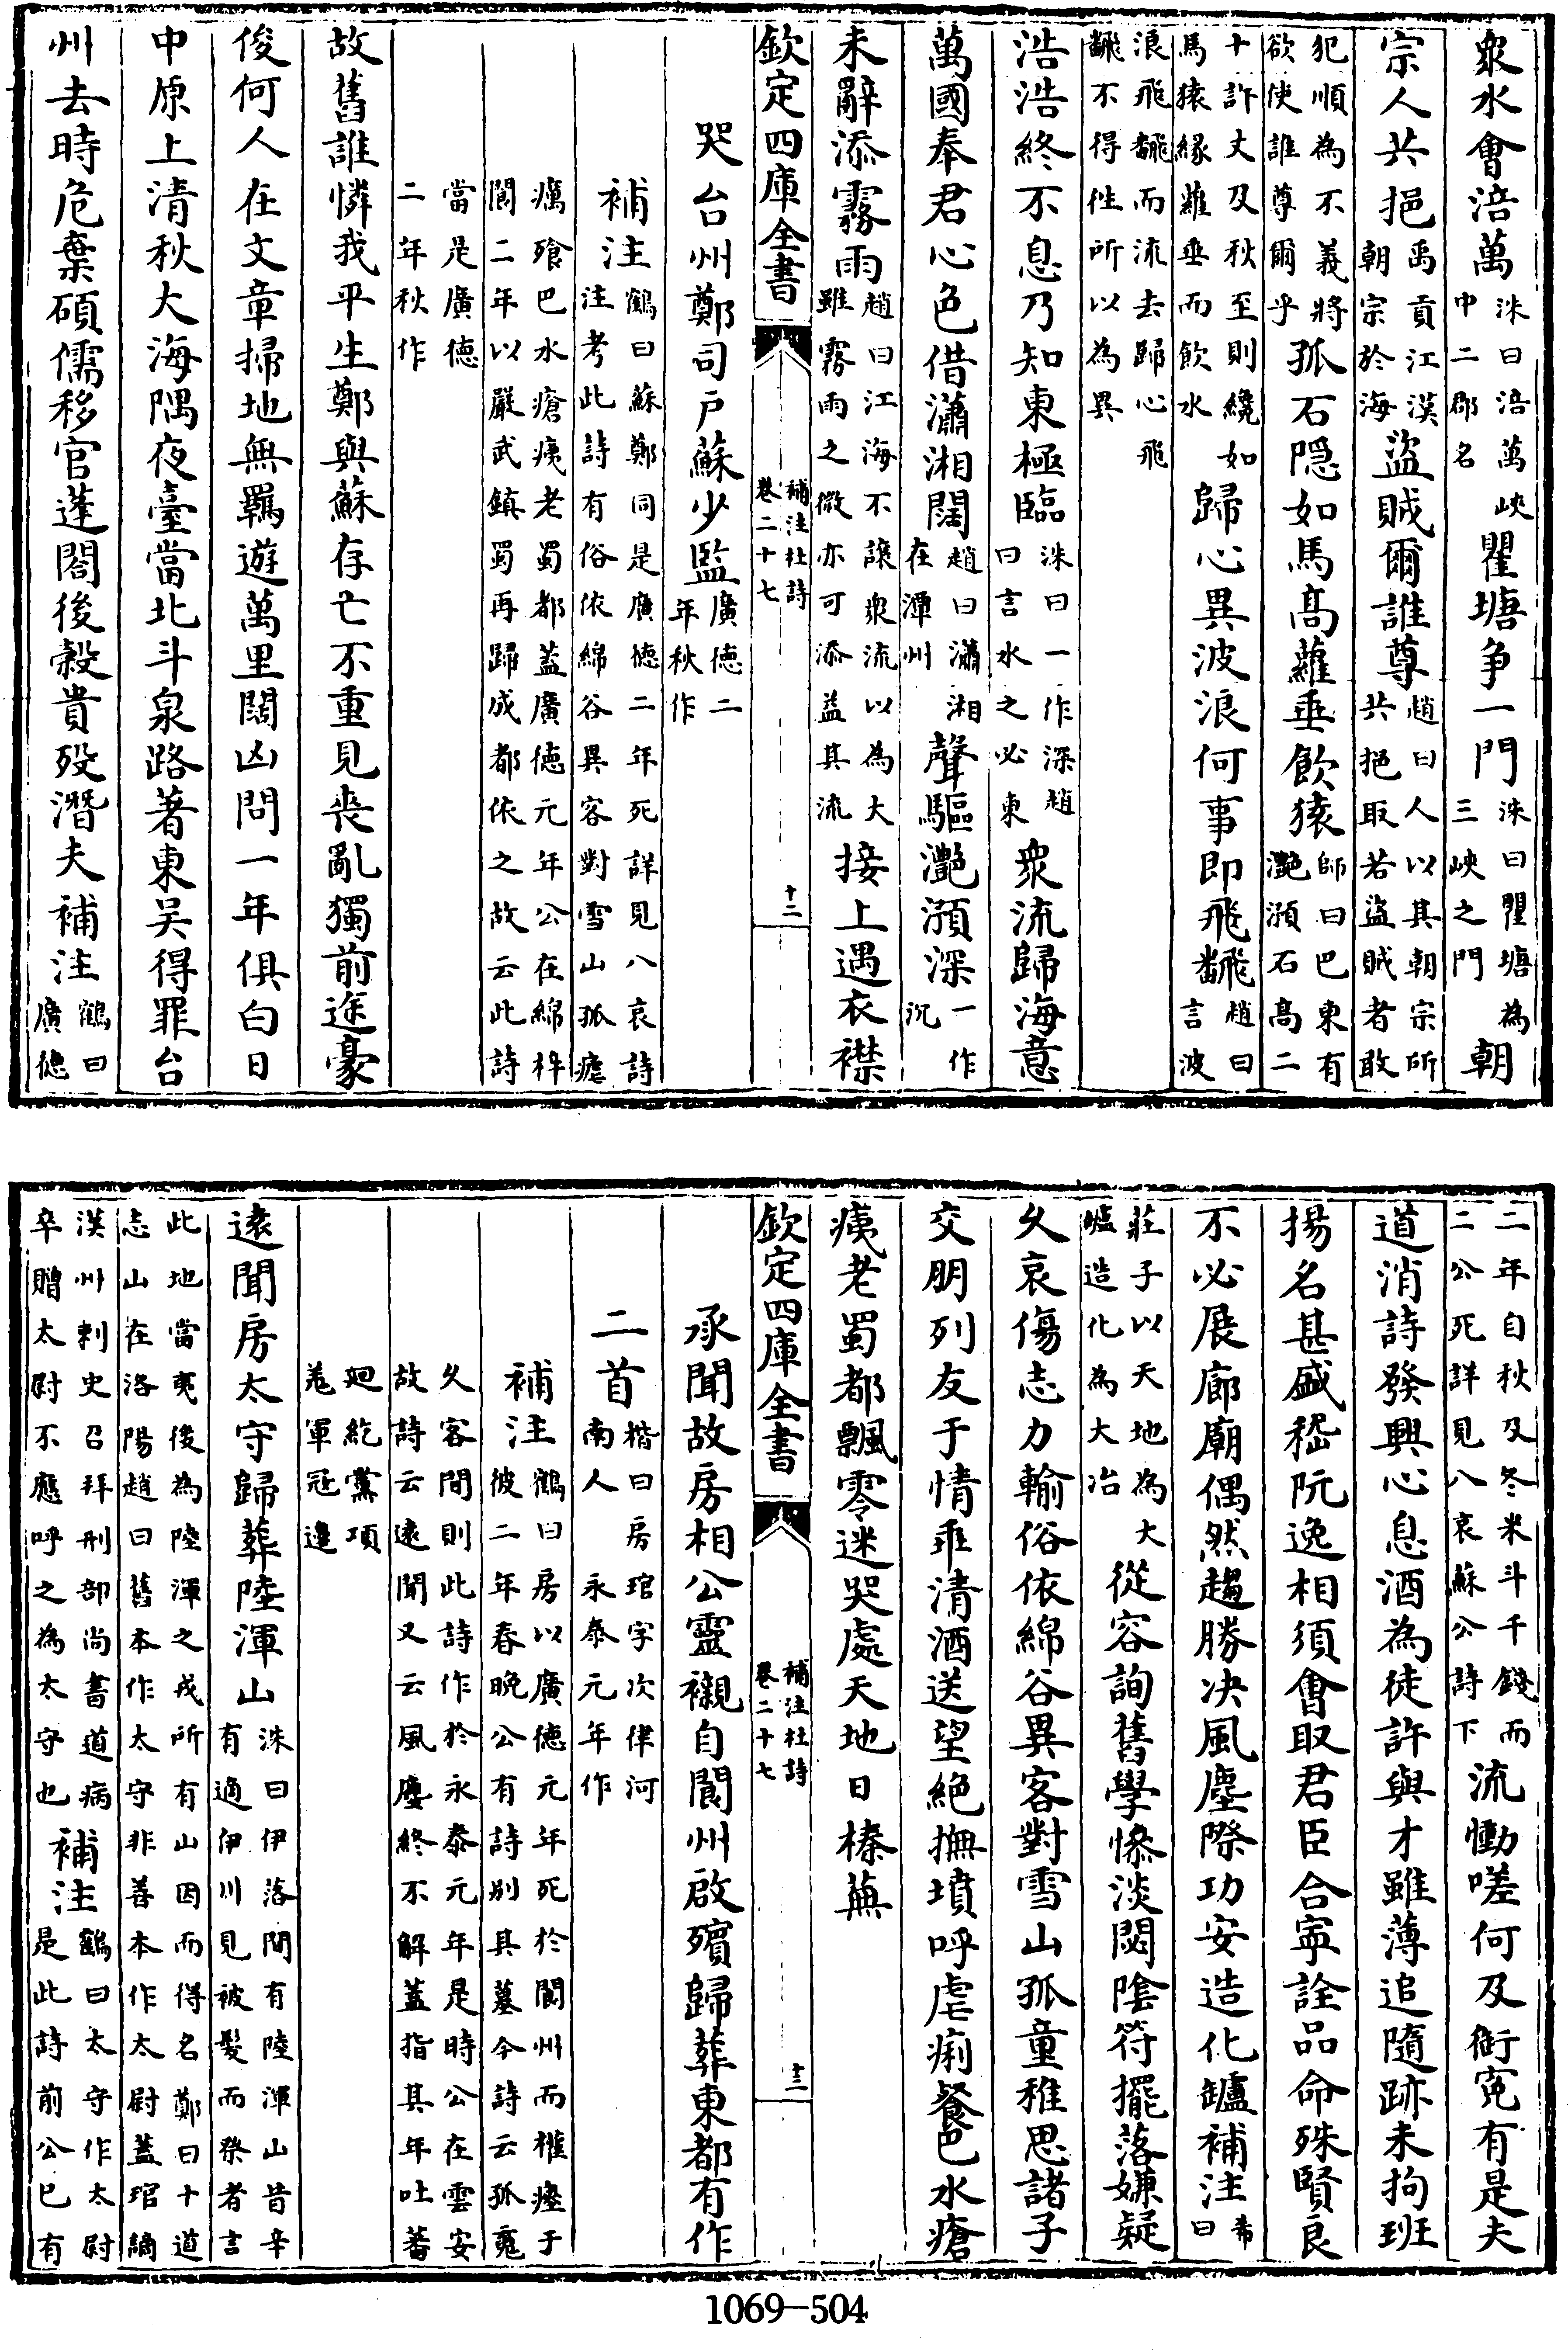 衆水會涪萬洙曰涪萬峽中二郡名瞿塘争一門洙曰瞿塘為三峽之門朝
宗人共挹禹貢江漢朝宗於海盜賊爾誰尊趙曰人以其朝宗所共挹取若盜賊者敢
犯順為不義將欲使誰尊爾乎孤石隠如馬髙蘿垂飲猿師曰巴東有灔澦石髙二
十許丈及秋至則纔如馬猿縁蘿垂而飲水歸心異波浪何事即飛翻趙曰言波
浪飛翻而流去歸心飛翻不得往所以為異
浩浩終不息乃知東極臨洙曰一作深趙曰言水之必東衆流歸海意
萬國奉君心色借瀟湘闊趙曰瀟湘在潭州聲驅灔澦深一作沉
未辭添霧雨趙曰江海不讓衆流以為大雖霧雨之微亦可添益其流接上遇衣襟
欽定四庫全書
補注杜詩
卷二十七
十二
哭台州鄭司戸蘇少監廣徳二年秋作
補注鶴曰蘇鄭同是廣徳二年死詳見八哀詩注考此詩有俗依綿谷異客對雪山孤瘧
癘飱巴水瘡痍老蜀都蓋廣徳元年公在綿梓閬二年以嚴武鎮蜀再歸成都依之故云此詩
當是廣徳二年秋作
故舊誰憐我平生鄭與蘇存亡不重見喪亂獨前途豪
俊何人在文章掃地無羈遊萬里闊凶問一年俱白日
中原上清秋大海隅夜臺當北斗泉路著東吴得罪台
州去時危棄碩儒移官蓬閣後榖貴殁潛夫補注鶴曰廣徳
二年自秋及冬米斗千錢而二公死詳見八哀蘇公詩下流慟嗟何及衘寃有是夫
道消詩發興心息酒為徒許與才雖薄追隨跡未拘班
揚名甚盛嵇阮逸相須㑹取君臣合寜詮品命殊賢良
不必展廊廟偶然趨勝决風塵際功安造化鑪補注希曰
莊子以天地為大爐造化為大冶從容詢舊學慘淡閟陰符擺落嫌疑
久哀傷志力輸俗依綿谷異客對雪山孤童稚思諸子
交朋列友于情乖清酒送望絶撫墳呼虐痢餐巴水瘡
痍老蜀都飄零迷哭處天地日榛蕪
欽定四庫全書
補注杜詩
卷二十七
十三
承聞故房相公靈櫬自閬州啟殯歸葬東都有作
二首楷曰房琯字次律河南人永泰元年作
補注鶴曰房以廣徳元年死於閬州而權瘞于彼二年春晚公有詩别其墓今詩云孤䰟
久客間則此詩作於永泰元年是時公在雲安故詩云逺聞又云風塵終不解蓋指其年吐蕃
廻紇黨項羗軍冦邉
逺聞房太守歸葬陸渾山洙曰伊落間有陸渾山昔辛有適伊川見被髮而祭者言
此地當夷後為陸渾之戎所有山因而得名鄭曰十道志山在洛陽趙曰舊本作太守非善本作太尉蓋琯謫
漢州刺史召拜刑部尚書道病卒贈太尉不應呼之為太守也補注鶴曰太守作太尉是此詩前公已有
1069-504